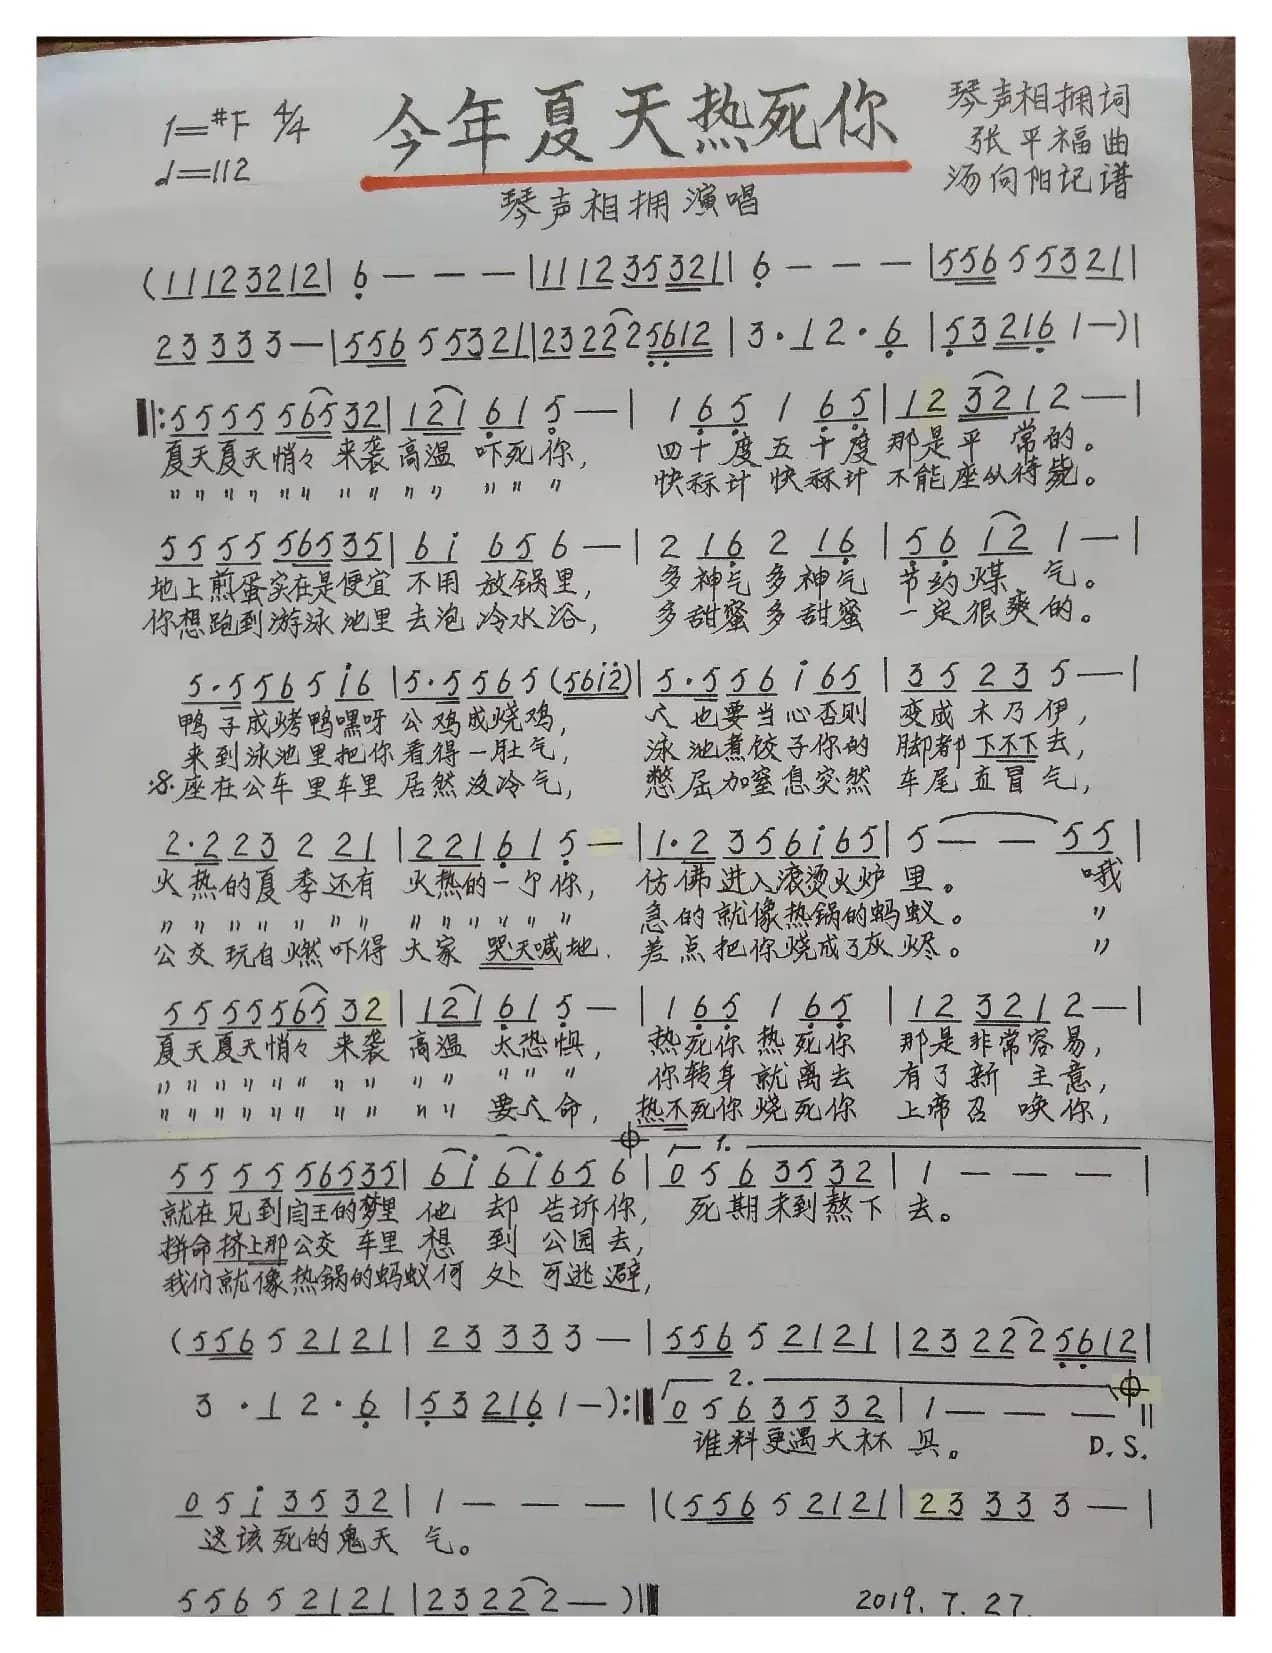 1=#F 4/4
今年夏天热死你
琴声相拥词
♩=112
张平福曲
汤向阳记谱
琴声相拥演唱
(1112 3212 | 6 — — — | 1112 35321 | 6 — — — | 556 5 5321 |
23 33 3 — | 556 5 5321 | 23 22 2 5612 | 3 · 1 2 · 6 | 53 216 1 — ) |
‖: 55 55 565 32 | 1 21 61 5 — | 1 65 1 65 | 12 321 2 — |
夏天夏天悄々来袭高温 吓死你, 四十度五十度 那是平常的。
〃〃〃〃〃〃〃〃〃〃 〃〃〃 快秝计 快秝计 不能座从待毙。
55 55 565 35 | 6 i 65 6 — | 2 16 2 16 | 56 12 1 — |
地上煎蛋实在是便宜 不用 放锅里, 多神气多神气 节约煤气。
你想跑到游泳池里去泡冷水浴, 多甜蜜多甜蜜 一定很爽的。
5·5 56 5 i6 | 5·5 56 5 (56i2) | 5·5 56 i 65 | 35 23 5 — |
鸭子成烤鸭嘿呀 公鸡成烧鸡, 人也要当心否则 变成木乃伊,
来到泳池里把你看得一肚气, 泳池煮饺子你的 脚都下不下去,
𝄋座在公车里车里 居然没冷气, 憋屈加窒息突然 车尾直冒气,
2·2 23 2 21 | 2 21 61 5 — | 1·2 35 6i 65 | 5 — — 55 |
火热的夏季还有 火热的一个你, 仿佛进入滚烫火炉里。 哦
〃〃〃〃〃〃〃 〃〃〃〃〃〃 急的就像热锅的蚂蚁。 〃
公交玩自燃吓得 大家 哭天喊地. 差点把你烧成了灰烬。 〃
55 55 565 32 | 1 21 61 5 — | 1 65 1 65 | 12 321 2 — |
夏天夏天悄々来袭 高温 太恐惧, 热死你热死你 那是非常容易,
〃〃〃〃〃〃〃〃 〃〃 〃〃〃 你转身就离去 有了新主意,
〃〃〃〃〃〃〃〃 〃〃 要人命, 热不死你烧死你 上帝召唤你,
55 55 565 35 | 6 i 6 i 65 6 | 1. 05 6 35 32 | 1 — — — |
就在见到阎王的梦里 他却告诉你, 死期未到熬下去。
拼命挤上那公交车里想到公园去,
我们就像热锅的蚂蚁何处可逃避,
(556 5 21 21 | 23 33 3 — | 556 5 21 21 | 23 22 2 5612 |
3 · 1 2 · 6 | 53 216 1 — ) :‖ 2. 05 6 35 32 | 1 — — — ‖
谁料更遇大杯具。 D.S.
05 i 35 32 | 1 — — — | (556 5 21 21 | 23 33 3 — |
这该死的鬼天气。
556 5 21 21 | 23 22 2 — ) ‖ 2019.7.27.